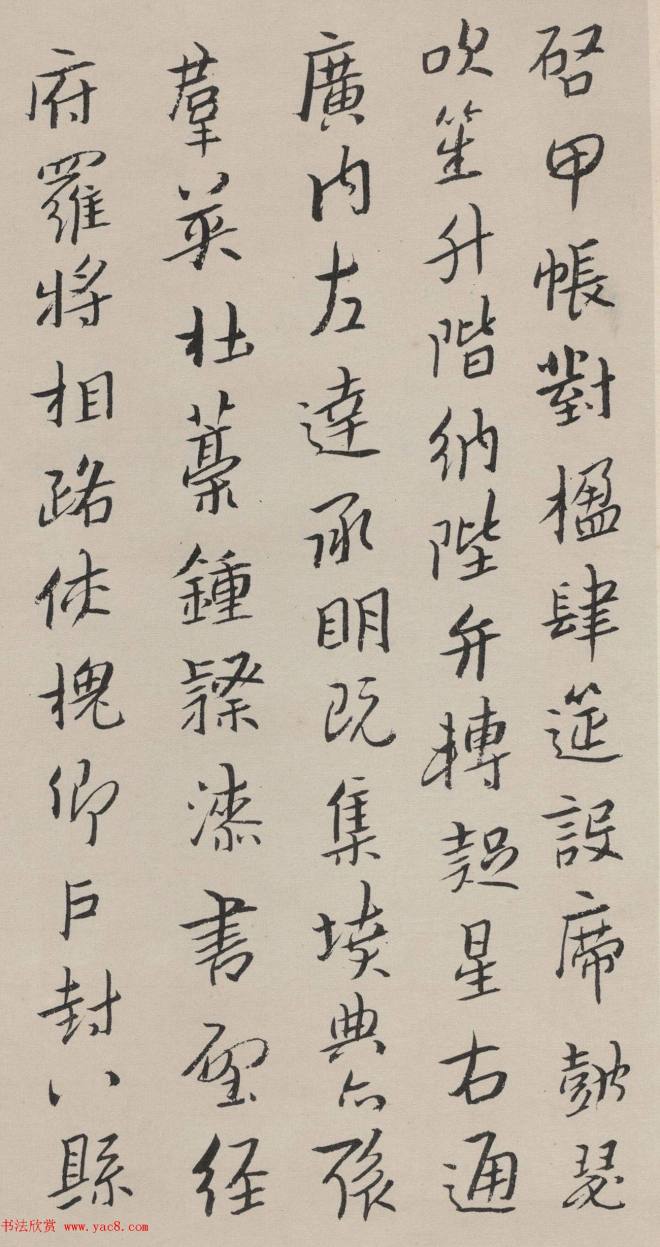 啓甲帳對楹肆筵設席皷瑟
吹笙升階納陛弁轉疑星右通
廣内左達承眀既集墳典亦聚
羣英杜藁鍾隸漆書壁経
府羅將相路俠槐卿户封八縣
书法欣赏 www.yac8.com